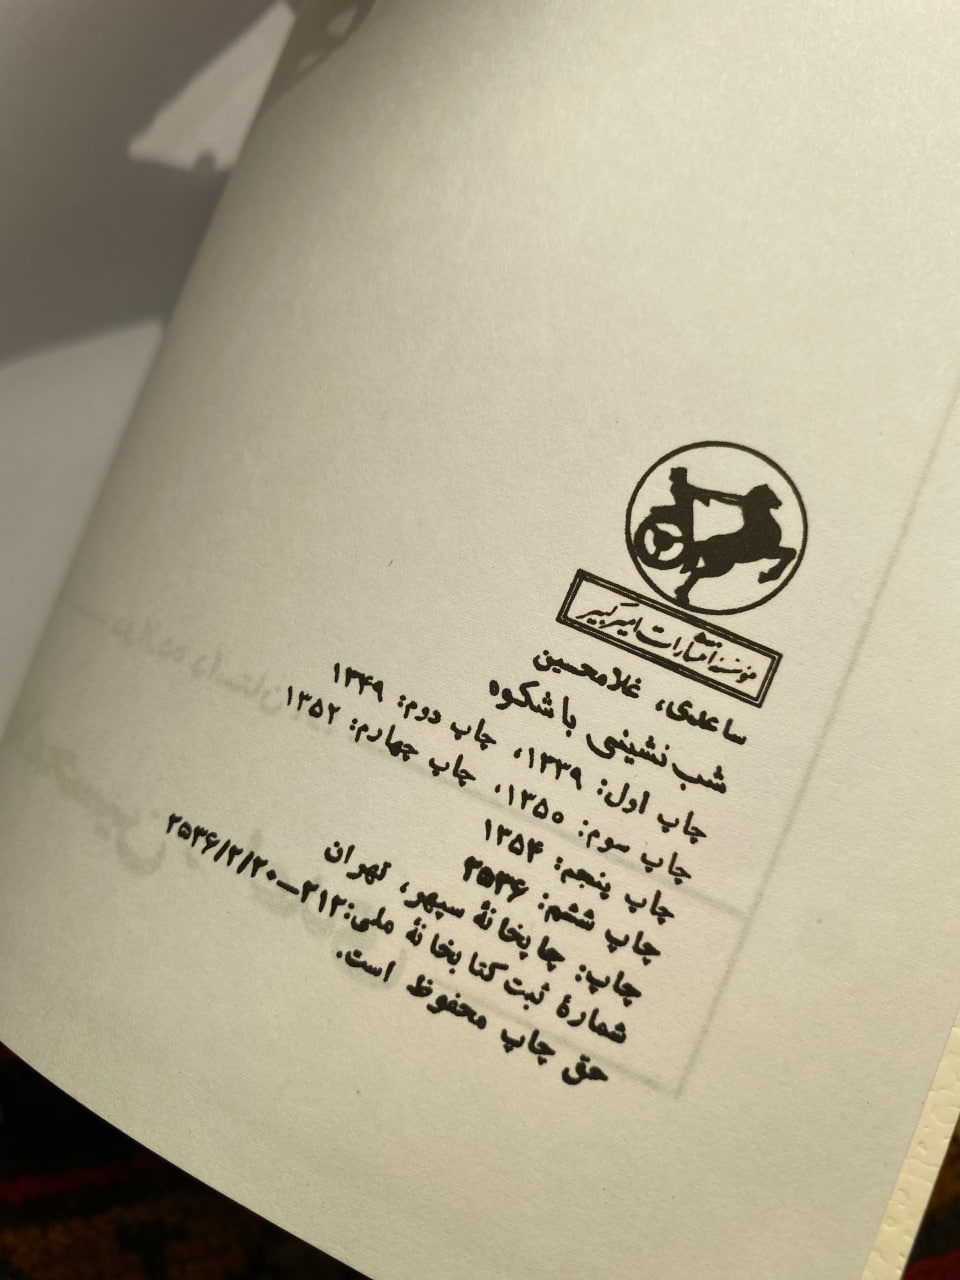 موسسهٔ انتشارات امیرکبیر
ساعدی، غلامحسین
شب‌نشینی باشکوه
چاپ اول: ۱۳۳۹، چاپ دوم: ۱۳۴۹
چاپ سوم: ۱۳۵۰، چاپ چهارم: ۱۳۵۲
چاپ پنجم: ۱۳۵۴
چاپ ششم: ۲۵۳۶
چاپ: چاپخانهٔ سپهر، تهران
شمارهٔ ثبت کتابخانهٔ ملی: ۲۱۲—۲۵۳۶/۲/۲۰
حق چاپ محفوظ است.